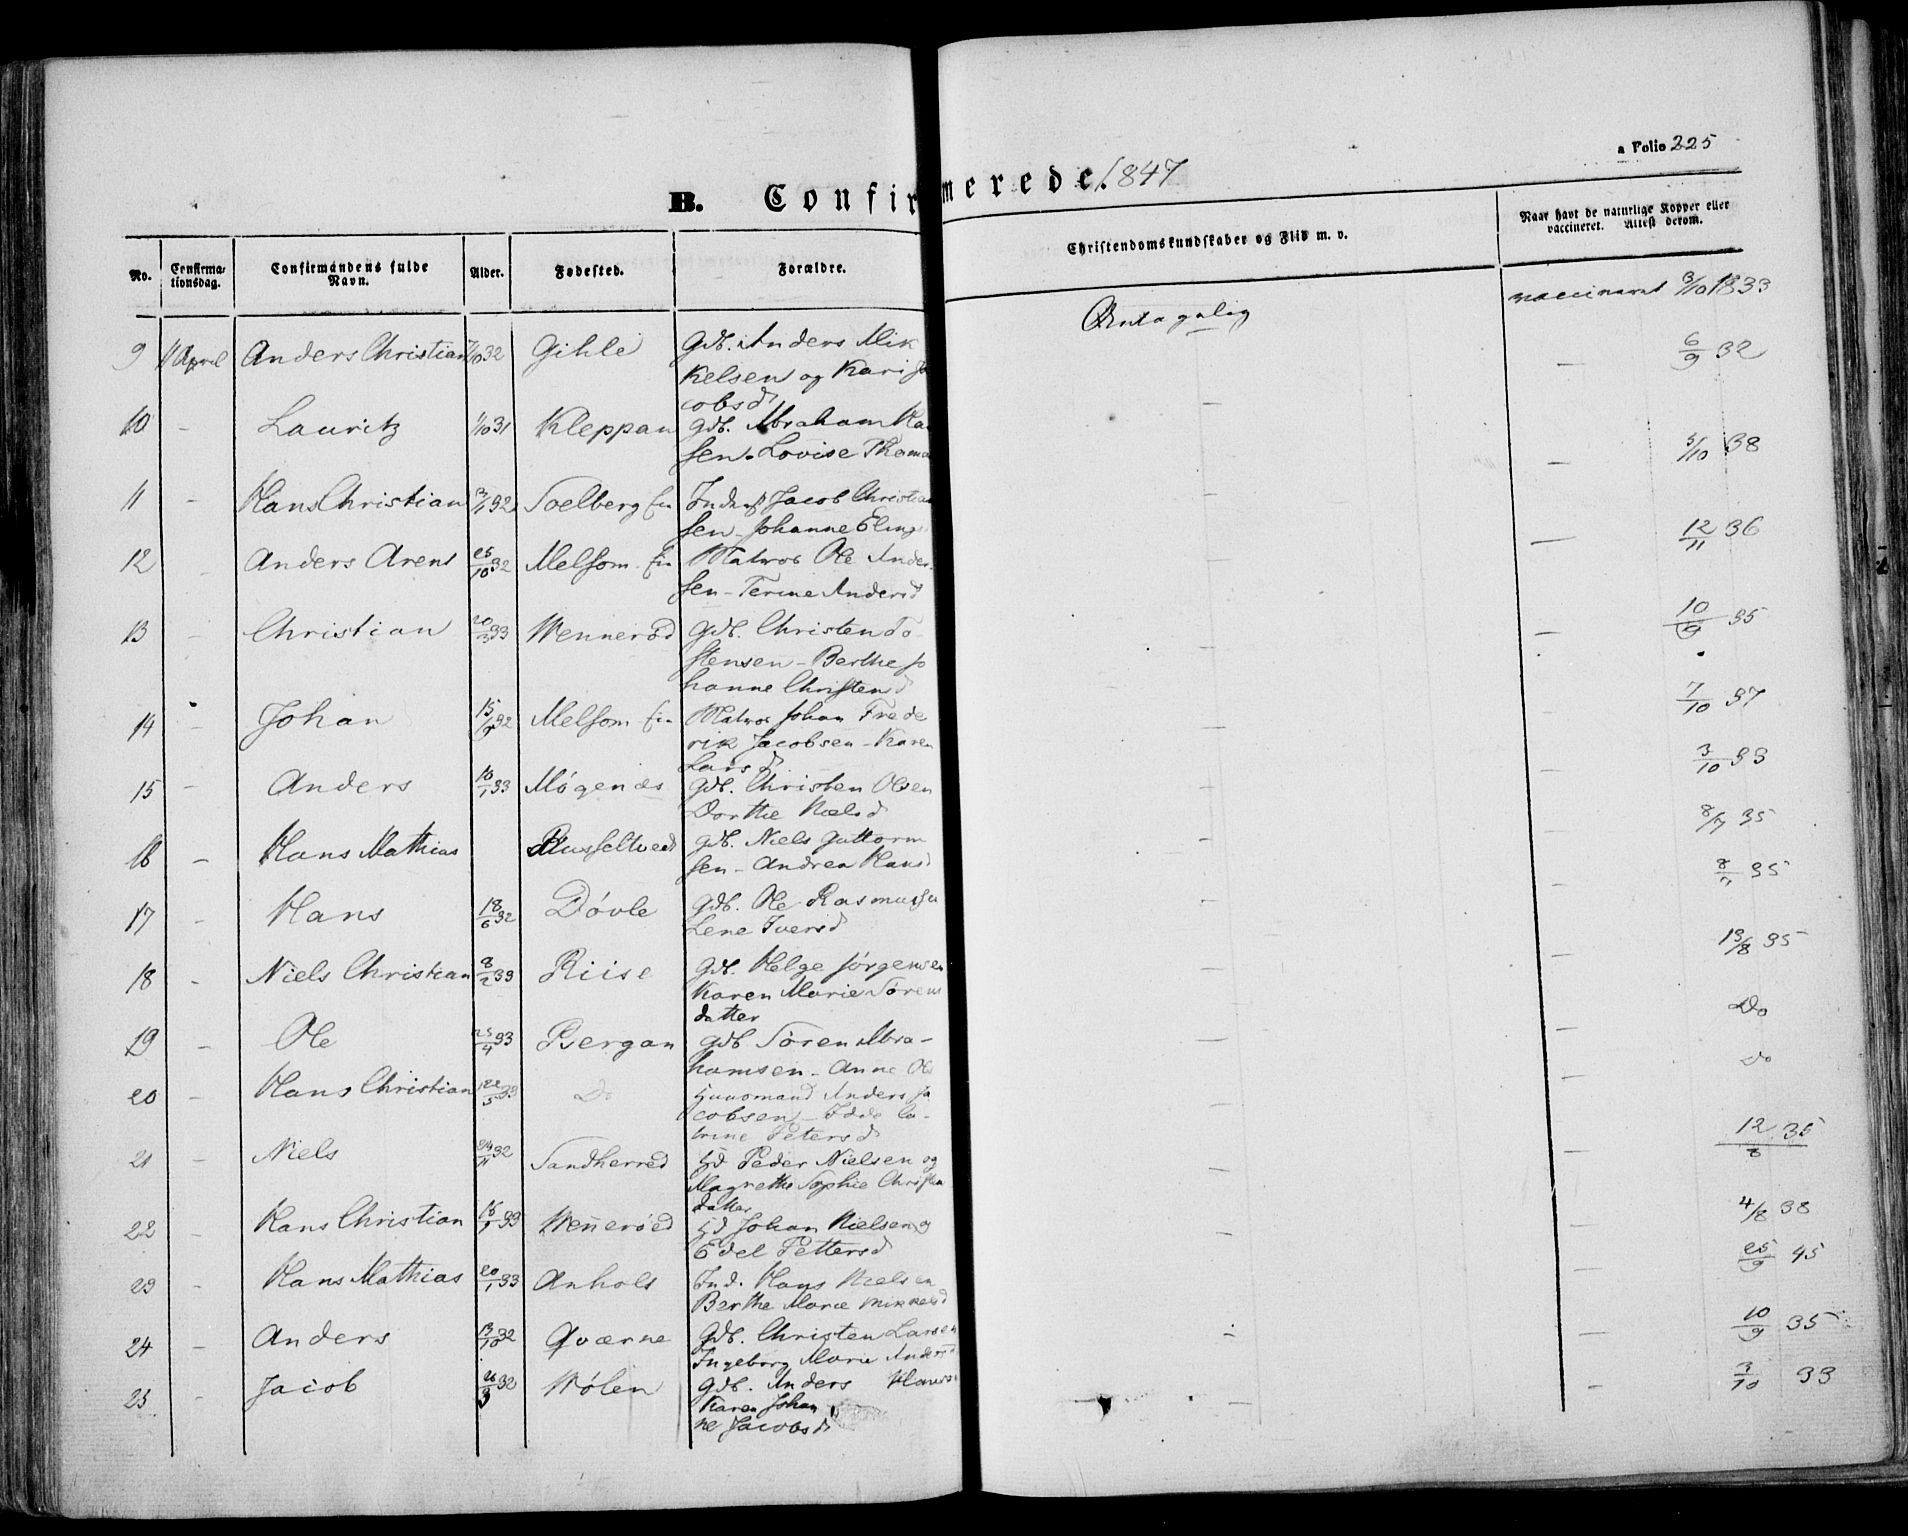 a Folio 225
B. Confirmerede. 1847
No.
Confirmationsdag.
Confirmandens fulde Navn.
Alder.
Fødested.
Forældre.
Christendomskundskaber og Flid m. v.
Naar havt de naturlige Kopper eller vaccineret. Attest derom.
9 11 April Anders Christian 32 Gihle Gdb. Anders Mik
kelsen og Kari Ja
cobsd
Antagelig
vaccineret 3/10 1833
10 - Lauritz 1/10 31 Kleppan Gdb. Abraham
sen - Lovise
— — 6/9 32
11 - Hans Christian 32 Soelberg Inderst Jacob Christian
sen - Johanne
— — 5/10 38
12 - Anders Arent 25/10 32 Melsom Matros Ole Ander
sen - Terine Andersd
— — 12/11 36
13 - Christian 33 Wennerød Gdb. Christen To
stensen - Berthe Jo
hanne Christensd
— — 10/9 35
14 - Johan 32 Melsom Matros Johan Frede
rik Jacobsen - Karen
Larsd
— — 7/10 37
15 - Anders 16/1 33 Møgenæs Gdb. Christen Olsen
Dorthe Nielsd
— — 3/10 33
16 - Hans Mathias Russeltvedt Gdb. Niels Guttorm
sen - Andrea Hansd
— — 8/7 35
17 - Hans 18/6 32 Døvle Gdb. Ole Rasmussen
Lene Iversd
— — 35
18 - Niels Christian 8/2 33 Riise Gdb. Helge Jørgensen
Karen Marie Sørens
datter
— — 13/8 35
19 - Ole 25/4 33 Bergan Gdb Søren Abra-
hamsen - Anne
— — Do
20 - Hans Christian 22/5 33 Do Huusmand Anders Ja
cobsen - Ca-
trine Petersd
— — Do
21 - Niels 24/11 32 Sandherred Hd Peder Nielsen og
Magrethe Sophie
datter
— — 12/8 35
22 - Hans Christian 33 Wennerøed Hd Johan Nielsen og
Edel Pettersd
— — 4/8 38
23 - Hans Mathias 20/1 33 Anholt Ind. Hans Nielsen
Berthe Marie Mikkelsd
25/9 45
24 - Anders 13/10 32 Qværne Gdb. Christen Larsen
Ingeborg Marie Andersd
— — 10/9 35
25 - Jacob 32 Wølen Gdb. Anders
Karen Johan
ne Jacobsd
— — 3/10 33